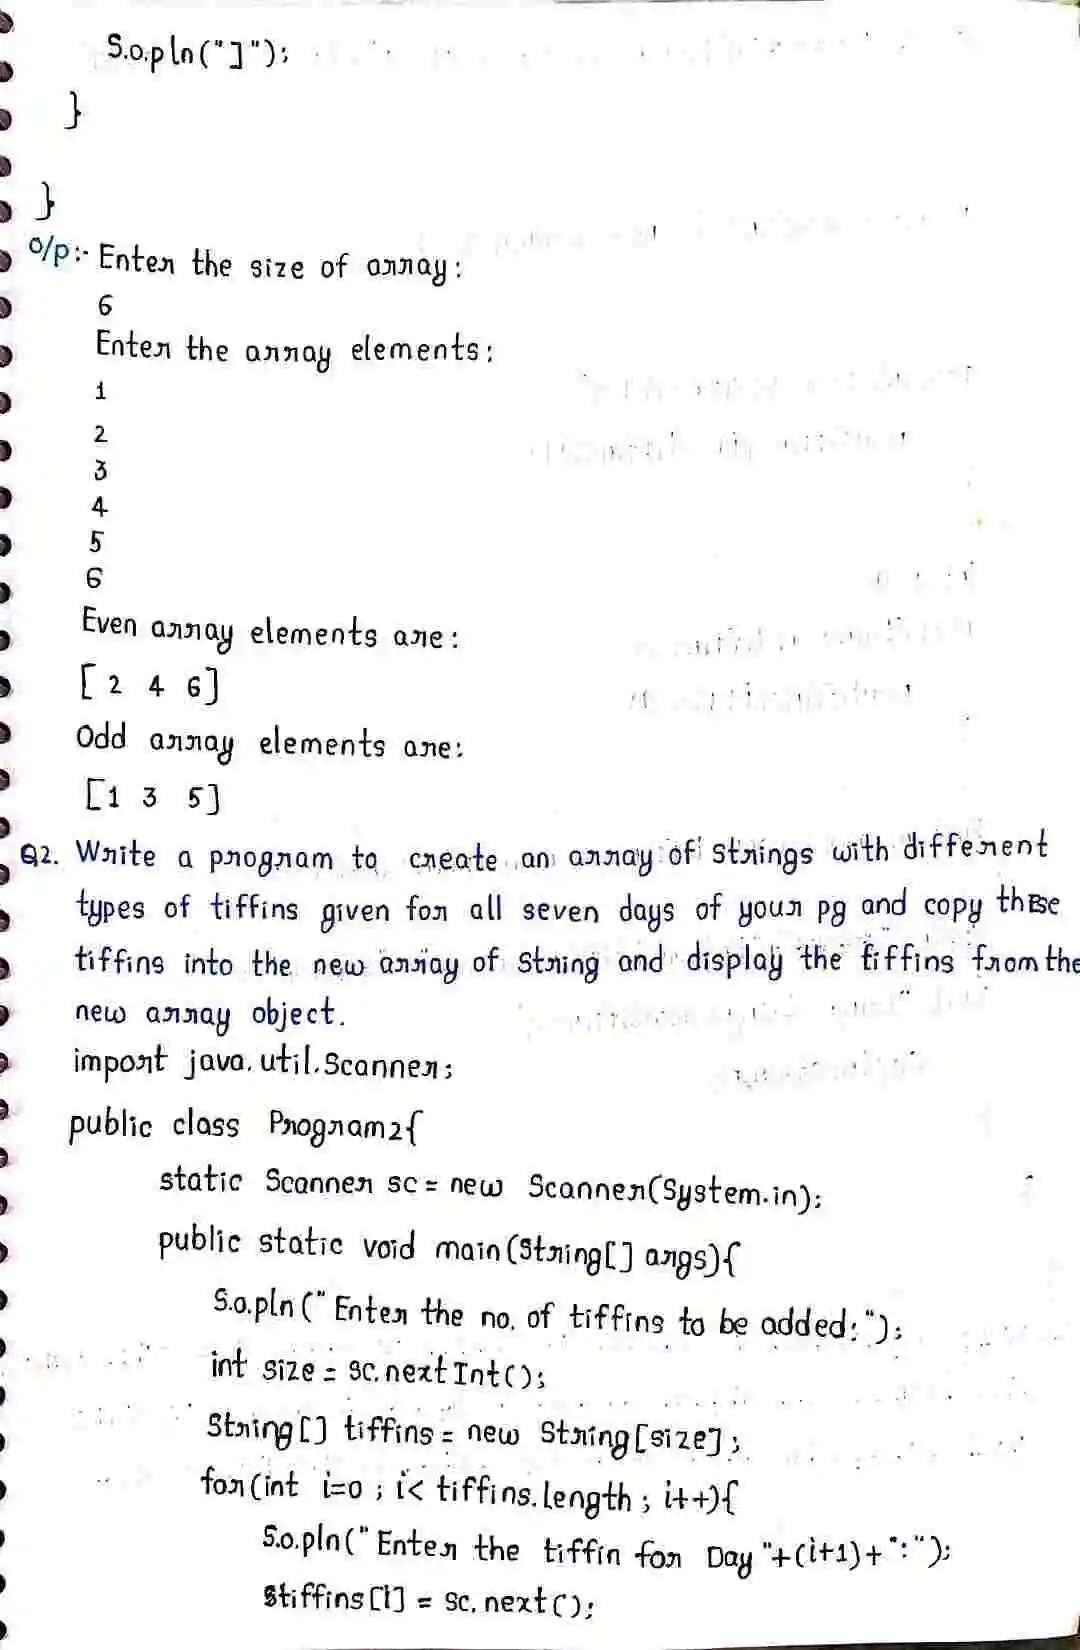 S.o.pln("]");
}
}
o/p:- Enter the size of array:
6
Enter the array elements:
1
2
3
4
5
6
Even array elements are:
[ 2 4 6]
Odd array elements are:
[1 3 5]
Q2. Write a program to create an array of strings with different
types of tiffins given for all seven days of your pg and copy these
tiffins into the new array of string and display the tiffins from the
new array object.
import java.util.Scanner;
public class Program2{
static Scanner sc = new Scanner(System.in);
public static void main(String[] args){
S.o.pln("Enter the no. of tiffins to be added:");
int size = sc.nextInt();
String[] tiffins = new String[size];
for(int i=0; i< tiffins.length; i++){
S.o.pln("Enter the tiffin for Day "+(i+1)+":");
tiffins[i] = sc.next();